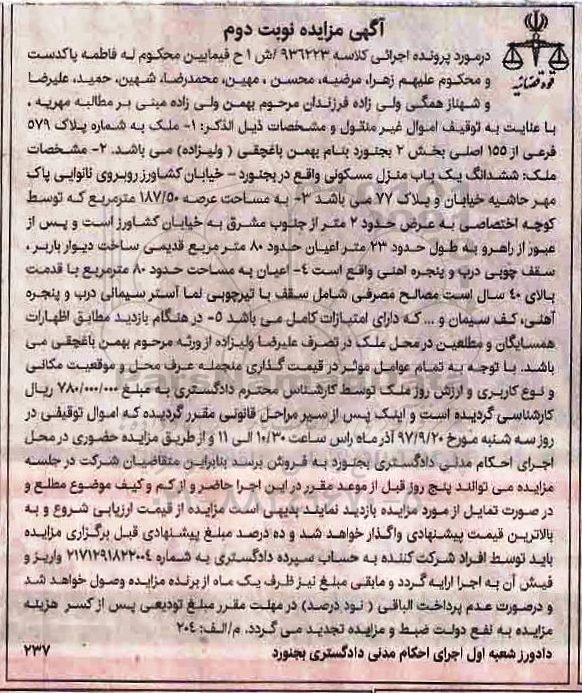 آگهی مزایده نوبت دوم
قوه قضائیه
درمورد پرونده اجرائی کلاسه ۹۳۶۲۲۳ /ش ۱ ح فیمابین محکوم له فاطمه پاکدست
و محکوم علیهم زهرا، مرضیه، محسن ، مهین، محمدرضا، شهین، حمید، علیرضا
و شهناز همگی ولی زاده فرزندان مرحوم بهمن ولی زاده مبنی بر مطالبه مهریه ،
با عنایت به توقیف اموال غیر منقول و مشخصات ذیل الذکر: ۱- ملک به شماره پلاک ۵۷۹
فرعی از ۱۵۵ اصلی بخش ۲ بجنورد بنام بهمن باغچقی ( ولیزاده) می باشد. ۲- مشخصات
ملک: ششدانگ یک باب منزل مسکونی واقع در بجنورد – خیابان کشاورز روبروی نانوایی پاک
مهر حاشیه خیابان و پلاک ۷۷ می باشد ۳- به مساحت عرصه ۱۸۷/۵۰ مترمربع که توسط
کوچه اختصاصی به عرض حدود ۲ متر از جنوب مشرق به خیابان کشاورز است و پس از
عبور از راهرو به طول حدود ۲۳ متر اعیان حدود ۸۰ متر مربع قدیمی ساخت دیوار باربر ،
سقف چوبی درب و پنجره اهنی واقع است ۴- اعیان به مساحت حدود ۸۰ مترمربع با قدمت
بالای ۴۰ سال است مصالح مصرفی شامل سقف با تیرچوبی نما آستر سیمانی درب و پنجره
آهنی، کف سیمان و ... که دارای امتیازات کامل می باشد ۵- در هنگام بازدید مطابق اظهارات
همسایگان و مطلعین در محل ملک در تصرف علیرضا ولیزاده از ورثه مرحوم بهمن باغچقی می
باشد. با توجه به تمام عوامل موثر در قیمت گذاری منجمله عرف محل و موقعیت مکانی
و نوع کاربری و ارزش روز ملک توسط کارشناس محترم دادگستری به مبلغ ۷۸۰/۰۰۰/۰۰۰ ریال
کارشناسی گردیده است و اینک پس از سیر مراحل قانونی مقرر گردیده که اموال توقیفی در
روز سه شنبه مورخ ۹۷/۹/۲۰ آذر ماه راس ساعت ۱۰/۳۰ الی ۱۱ و از طریق مزایده حضوری در محل
اجرای احکام مدنی دادگستری بجنورد به فروش برسد بنابراین متقاضیان شرکت در جلسه
مزایده می توانند پنج روز قبل از موعد مقرر در این اجرا حاضر و از کم و کیف موضوع مطلع و
در صورت تمایل از مورد مزایده بازدید نمایند بدیهی است مزایده از قیمت ارزیابی شروع و به
بالاترین قیمت پیشنهادی واگذار خواهد شد و ده درصد مبلغ پیشنهادی قبل برگزاری مزایده
باید توسط افراد شرکت کننده به حساب سپرده دادگستری به شماره ۲۱۷۱۲۹۱۸۲۲۰۰۴ واریز و
فیش آن به اجرا ارایه گردد و مابقی مبلغ نیز ظرف یک ماه از برنده مزایده وصول خواهد شد
و درصورت عدم پرداخت الباقی ( نود درصد) در مهلت مقرر مبلغ تودیعی پس از کسر هزینه
مزایده به نفع دولت ضبط و مزایده تجدید می گردد. م/الف: ۲۰۴
دادورز شعبه اول اجرای احکام مدنی دادگستری بجنورد ۲۳۷